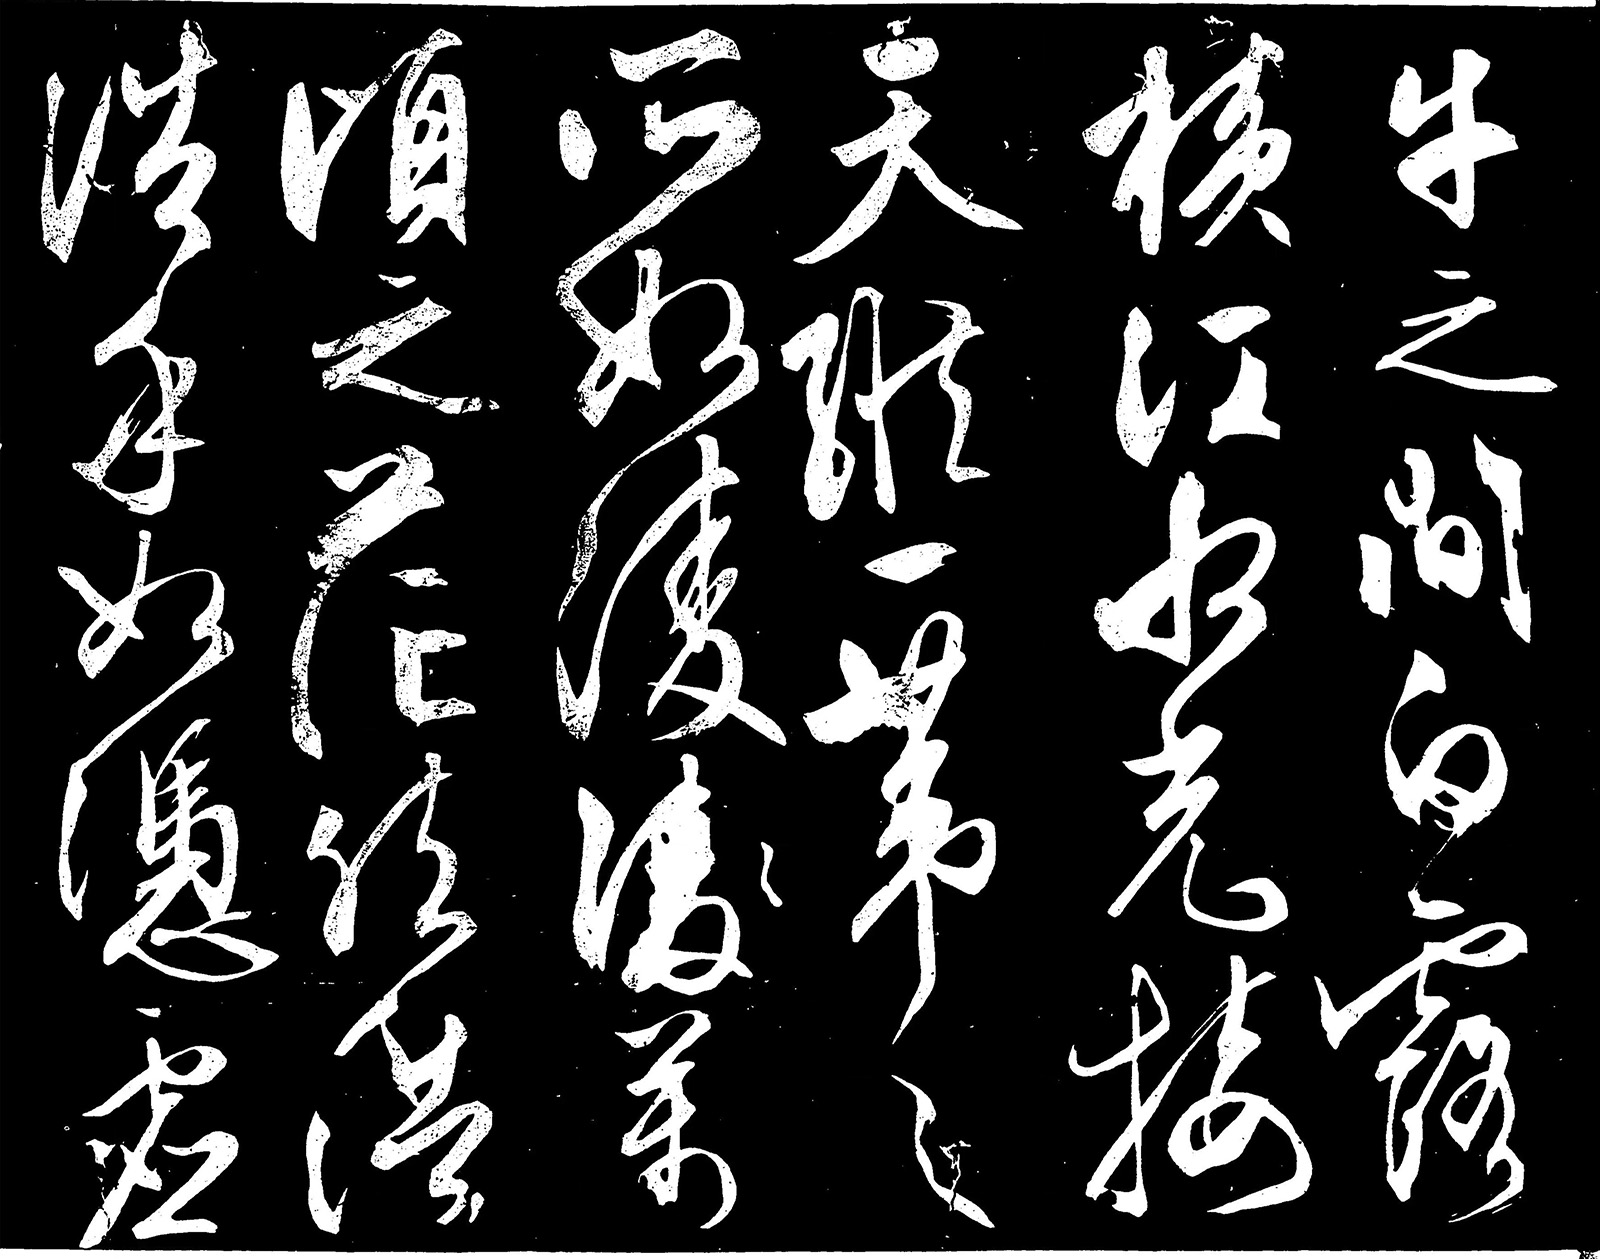 牛之間白露
橫江水光接
天縱一葦之
所如凌萬
頃之茫然浩
浩乎如憑虛